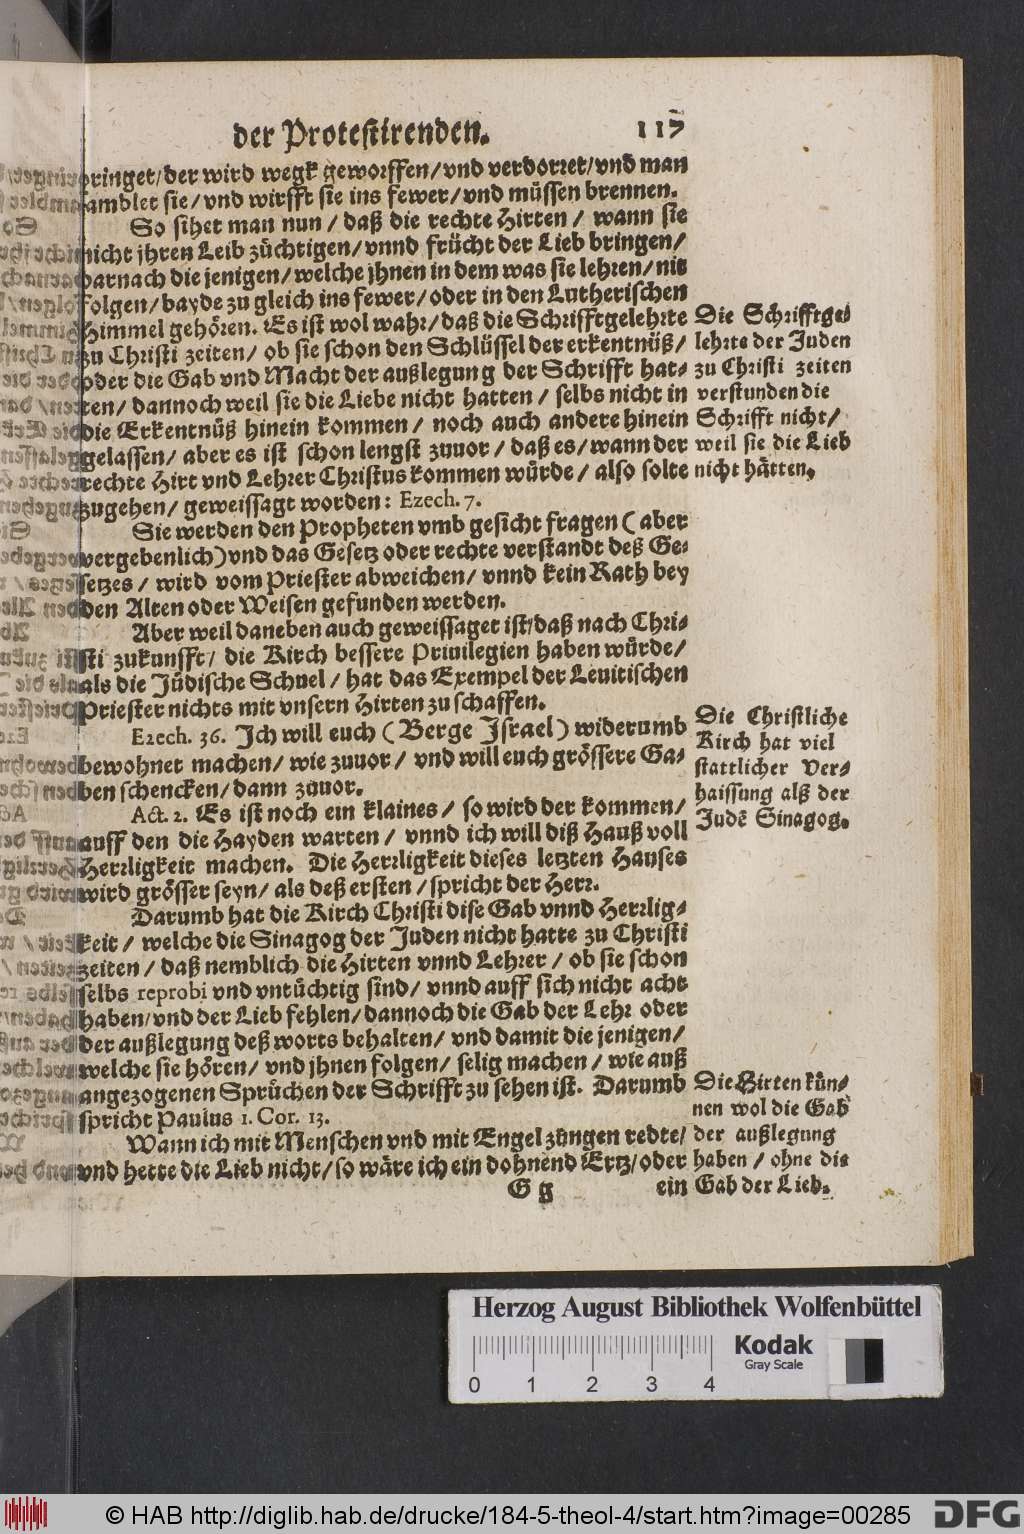 der Protestirenden. 117
bringet/ der wird wegk geworffen/ vnd verdorret/ vnd man
samblet sie/ vnd wirfft sie ins fewer/ vnd müssen brennen.
So sihet man nun / daß die rechte Hirten / wann sie
nicht jhren Leib züchtigen/ vnnd frücht der Lieb bringen/
darnach die jenigen/ welche jhnen in dem was sie lehren/ nit
folgen/ bayde zu gleich ins fewer/ oder in den Lutherischen
Himmel gehören. Es ist wol wahr/ daß die Schrifftgelehrte
zu Christi zeiten/ ob sie schon den Schlüssel der erkentnüß/
oder die Gab vnd Macht der außlegung der Schrifft hat-
ten/ dannoch weil sie die Liebe nicht hatten / selbs nicht in
die Erkentnüß hinein kommen / noch auch andere hinein
gelassen/ aber es ist schon lengst zuuor / daß es/ wann der
rechte Hirt vnd Lehrer Christus kommen würde/ also solte
zugehen/ geweissagt worden: Ezech. 7.
Die Schrifftge-
lehrte der Juden
zu Christi zeiten
verstunden die
Schrifft nicht/
weil sie die Lieb
nicht hätten.
Sie werden den Propheten vmb gesicht fragen ( aber
vergebenlich) vnd das Gesetz oder rechte verstandt deß Ge-
setzes / wird vom Priester abweichen/ vnnd kein Rath bey
den Alten oder Weisen gefunden werden.
Aber weil daneben auch geweissaget ist/ daß nach Chri-
sti zukunfft/ die Kirch bessere Priuilegien haben würde/
als die Jüdische Schuel / hat das Exempel der Leuitischen
Priester nichts mit vnsern Hirten zu schaffen.
Ezech. 36. Ich will euch ( Berge Israel ) widerumb
bewohnet machen/ wie zuuor / vnd will euch grössere Ga-
ben schencken/ dann zuuor.
Die Christliche
Kirch hat viel
stattlicher Ver-
haissung alß der
Judē Sinagog.
Act. 2. Es ist noch ein klaines / so wird der kommen/
auff den die Hayden warten / vnnd ich will diß Hauß voll
Herrligkeit machen. Die Herrligkeit dieses letzten Hauses
wird grösser seyn/ als deß ersten / spricht der Herr.
Darumb hat die Kirch Christi dise Gab vnnd Herrlig-
keit / welche die Sinagog der Juden nicht hatte zu Christi
zeiten / daß nemblich die Hirten vnnd Lehrer / ob sie schon
selbs reprobi vnd vntüchtig sind/ vnnd auff sich nicht acht
haben/ vnd der Lieb fehlen/ dannoch die Gab der Lehr oder
der außlegung deß worts behalten/ vnd damit die jenigen/
welche sie hören/ vnd jhnen folgen/ selig machen / wie auß
angezogenen Sprüchen der Schrifft zu sehen ist. Darumb
spricht Paulus 1. Cor. 13.
Wann ich mit Menschen vnd mit Engel zungen redte/
vnd hette die Lieb nicht/ so wäre ich ein dohnend Ertz/ oder
Die Hirten kün-
nen wol die Gab
der außlegung
haben / ohne die
Gab der Lieb.
G g ein
Herzog August Bibliothek Wolfenbüttel
Kodak
Gray Scale
0 1 2 3 4
© HAB http://diglib.hab.de/drucke/184-5-theol-4/start.htm?image=00285
DFG